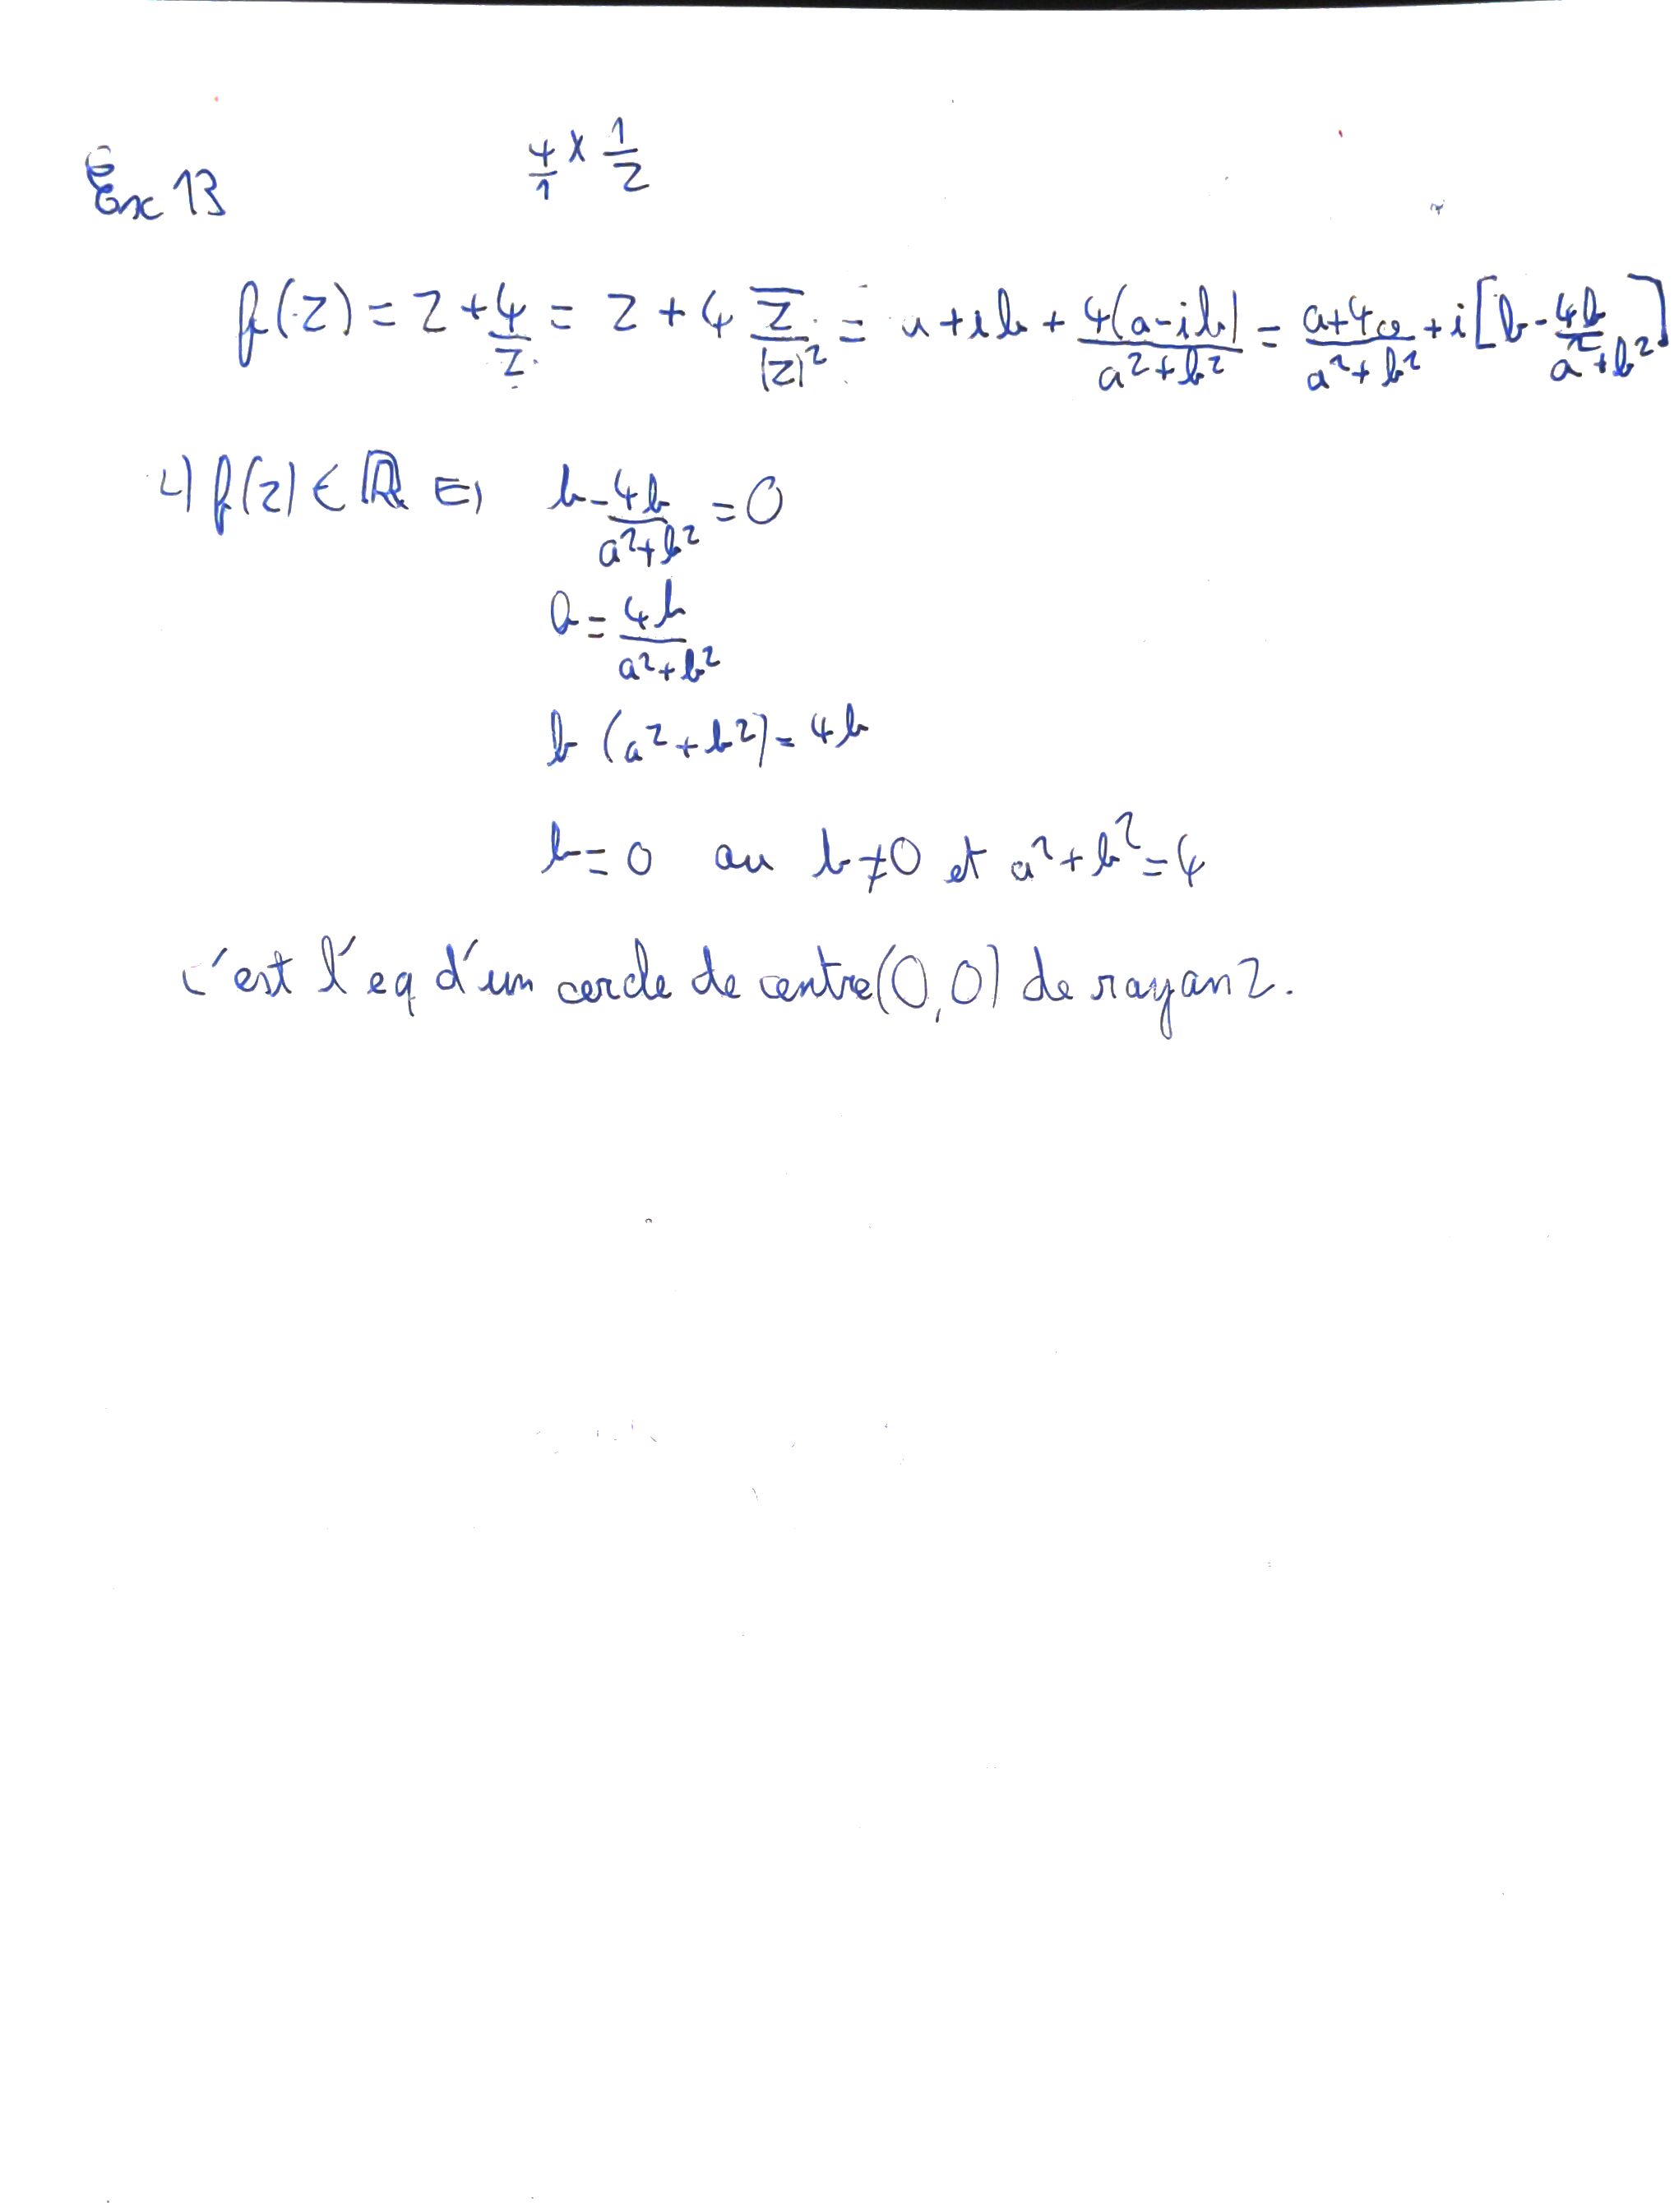 Exc 13
4/1 x 1/z
f(z) = z + 4/z = z + 4 z̅/|z|² = a + ib + 4(a-ib)/(a²+b²) = (a+4a)/(a²+b²) + i[b - 4b/(a²+b²)]
f(z) ∈ ℝ b - 4b/(a²+b²) = 0
b = 4b/(a²+b²)
b (a²+b²) = 4b
b = 0 ou b ≠ 0 et a²+b² = 4
c'est l'eq d'un cercle de centre (0,0) de rayon 2.